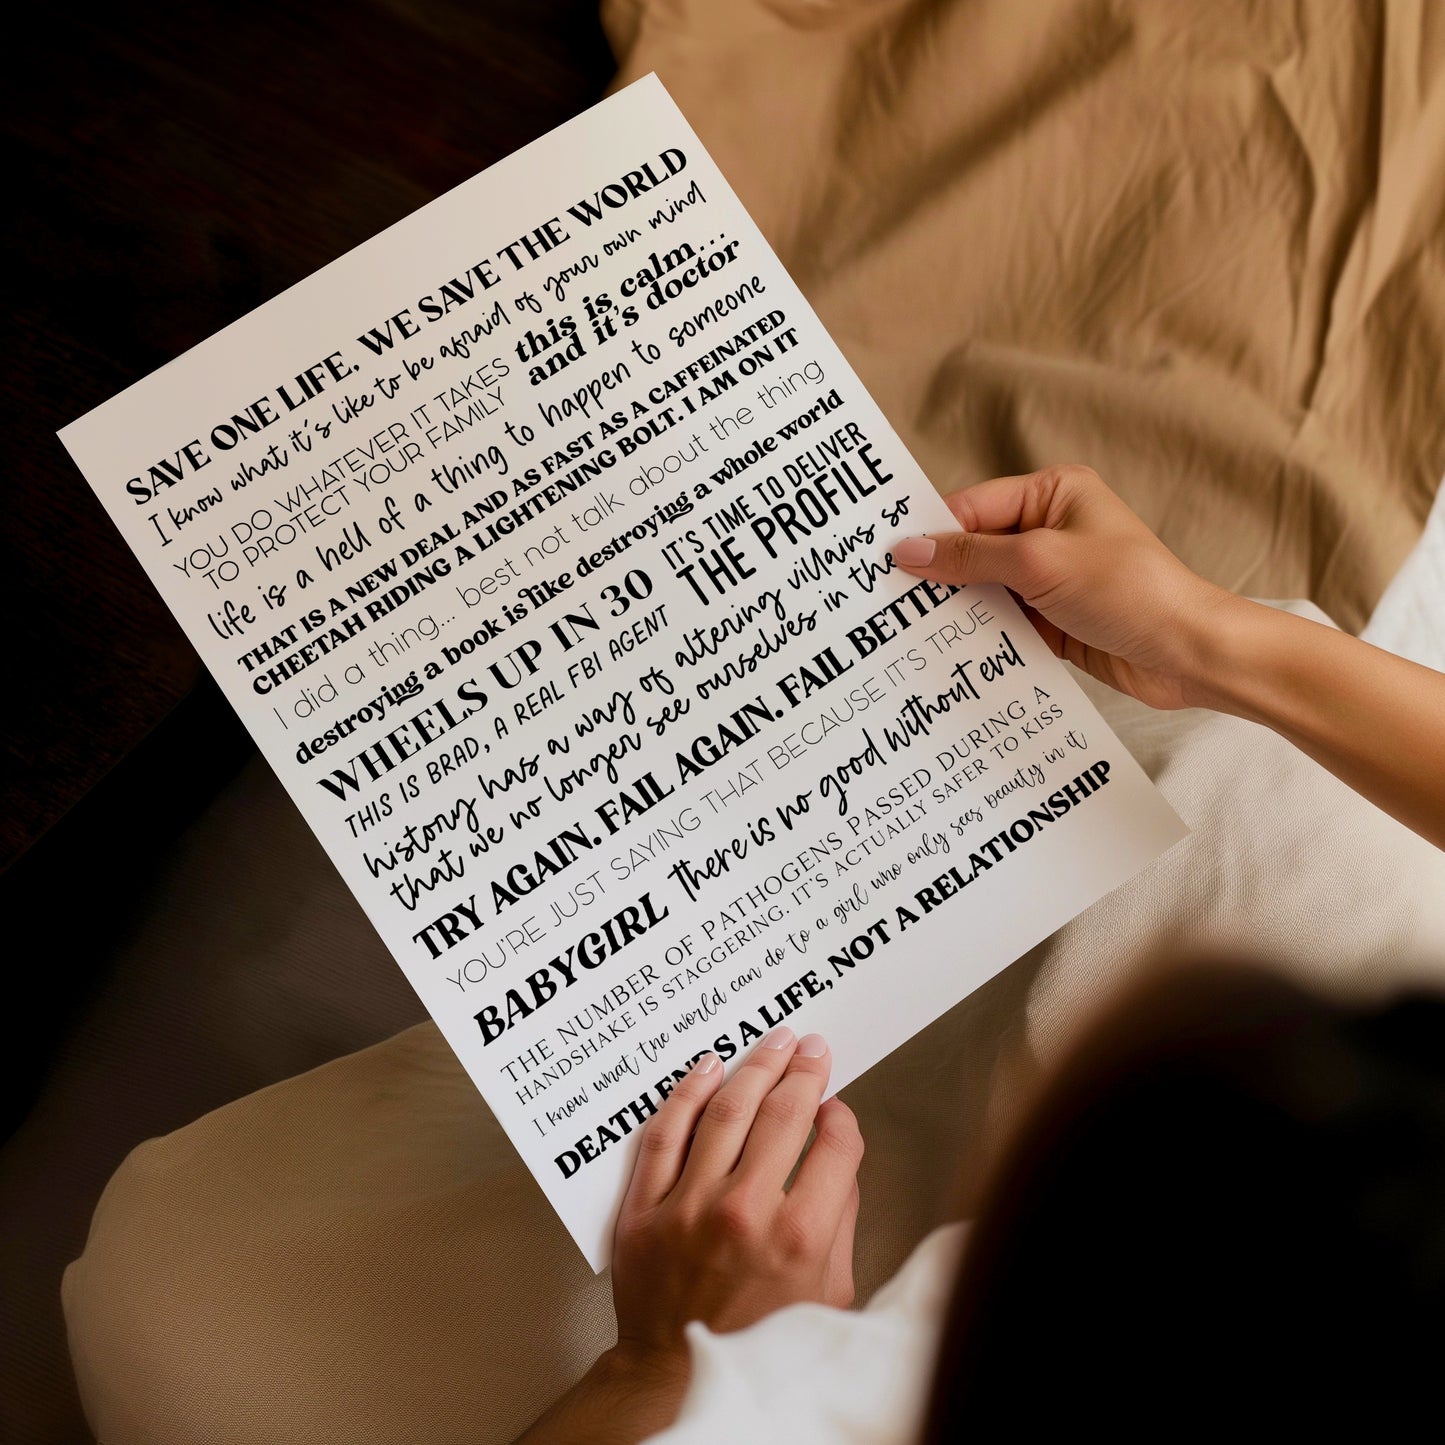 SAVE ONE LIFE, WE SAVE THE WORLD
I know what it's like to be afraid of your own mind
YOU DO WHATEVER IT TAKES
TO PROTECT YOUR FAMILY
this is calm...
and it's doctor
life is a hell of a thing to happen to someone
THAT IS A NEW DEAL AND AS FAST AS A CAFFEINATED
CHEETAH RIDING A LIGHTENING BOLT. I AM ON IT
I did a thing... best not talk about the thing
destroying a book is like destroying a whole world
WHEELS UP IN 30
THIS IS BRAD, A REAL FBI AGENT
IT'S TIME TO DELIVER
THE PROFILE
history has a way of altering villains so
that we no longer see ourselves in
TRY AGAIN. FAIL AGAIN. FAIL BETTER
YOU'RE JUST SAYING THAT BECAUSE IT'S TRUE
BABYGIRL
there is no good without evil
THE NUMBER OF PATHOGENS PASSED DURING A
HANDSHAKE IS STAGGERING. IT'S ACTUALLY SAFER TO KISS
I know what the world can do to a girl who only sees beauty in it
DEATH ENDS A LIFE, NOT A RELATIONSHIP